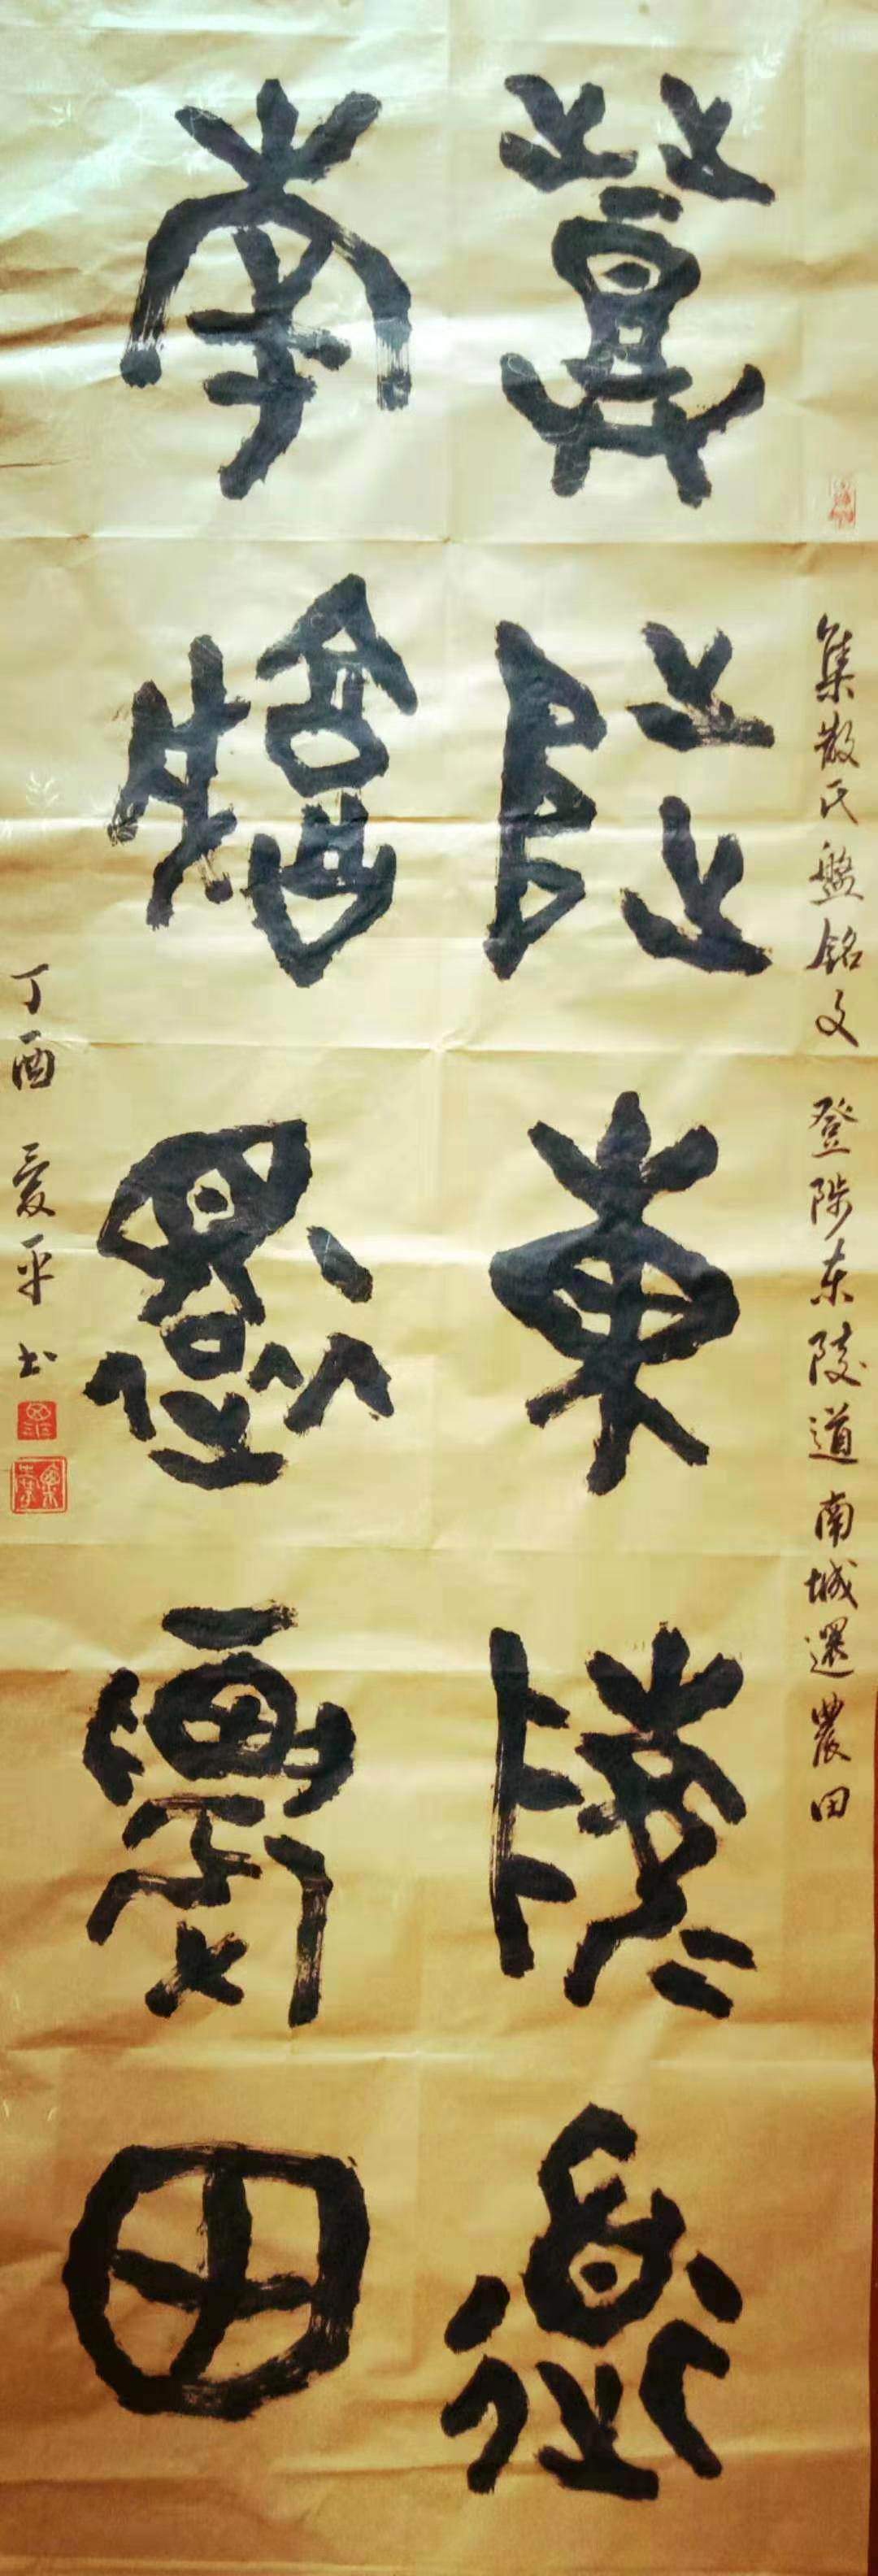 集散氏盤銘文 登陟东陵道 南城還農田
登陟東陵道
南城還農田
丁酉 爱平书